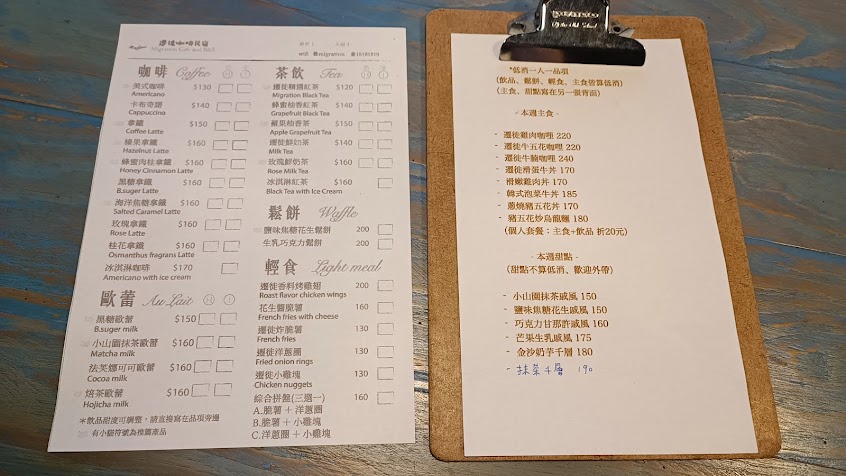 遷徙咖啡民宿
Migration Café and B&B
咖啡 Coffee
美式咖啡 $130
Americano
卡布奇諾 $140
Cappuccino
拿鐵 $150
Coffee Latte
榛果拿鐵 $160
Hazelnut Latte
蜂蜜肉桂拿鐵 $160
Honey Cinnamon Latte
黑糖拿鐵 $160
B.suger Latte
海洋焦糖拿鐵 $160
Salted Caramel Latte
玫瑰拿鐵 $160
Rose Latte
桂花拿鐵 $160
Osmanthus fragrans Latte
冰淇淋咖啡 $170
Americano with ice cream
歐蕾 Au Lait
黑糖歐蕾 $150
B.suger milk
小山園抹茶歐蕾 $160
Matcha milk
法芙娜可可歐蕾 $160
Cocoa milk
焙茶歐蕾 $160
Hojicha milk
*飲品甜度可調整，請直接寫在品項旁邊
有小貓符號為推薦產品
茶飲 Tea
遷徙精選紅茶 $120
Migration Black Tea
蜂蜜柚香紅茶 $140
Grapefruit Black Tea
蘋果柚香茶 $150
Apple Grapefruit Tea
遷徙鮮奶茶 $140
Milk Tea
玫瑰鮮奶茶 $160
Rose Milk Tea
冰淇淋紅茶 $160
Black Tea with Ice Cream
鬆餅 Waffle
鹽味焦糖花生鬆餅 200
生乳巧克力鬆餅 200
輕食 Light meal
遷徙香料烤雞翅 200
Roast flavor chicken wings
花生醬脆薯 160
French fries with cheese
遷徙炸脆薯 130
French fries
遷徙洋蔥圈 130
Fried onion rings
遷徙小雞塊 130
Chicken nuggets
綜合拼盤(三選一) 160
A.脆薯＋洋蔥圈
B.脆薯＋小雞塊
C.洋蔥圈＋小雞塊
*低消一人一品項
(飲品、鬆餅、輕食、主食皆算低消)
(主食、甜點寫在另一張背面)
- 本週主食 -
- 遷徙雞肉咖哩 220
- 遷徙牛五花咖哩 220
- 遷徙牛腩咖哩 240
- 遷徙滑蛋牛丼 170
- 滑嫩雞肉丼 170
- 韓式泡菜牛丼 185
- 蔥燒豬五花丼 170
- 豬五花炒烏龍麵 180
(個人套餐：主食+飲品 折20元)
- 本週甜點 -
(甜點不算低消、歡迎外帶)
- 小山園抹茶戚風 150
- 鹽味焦糖花生戚風 150
- 巧克力甘那許戚風 160
- 芒果生乳戚風 175
- 金沙奶芋千層 180
- 抹茶千層 190